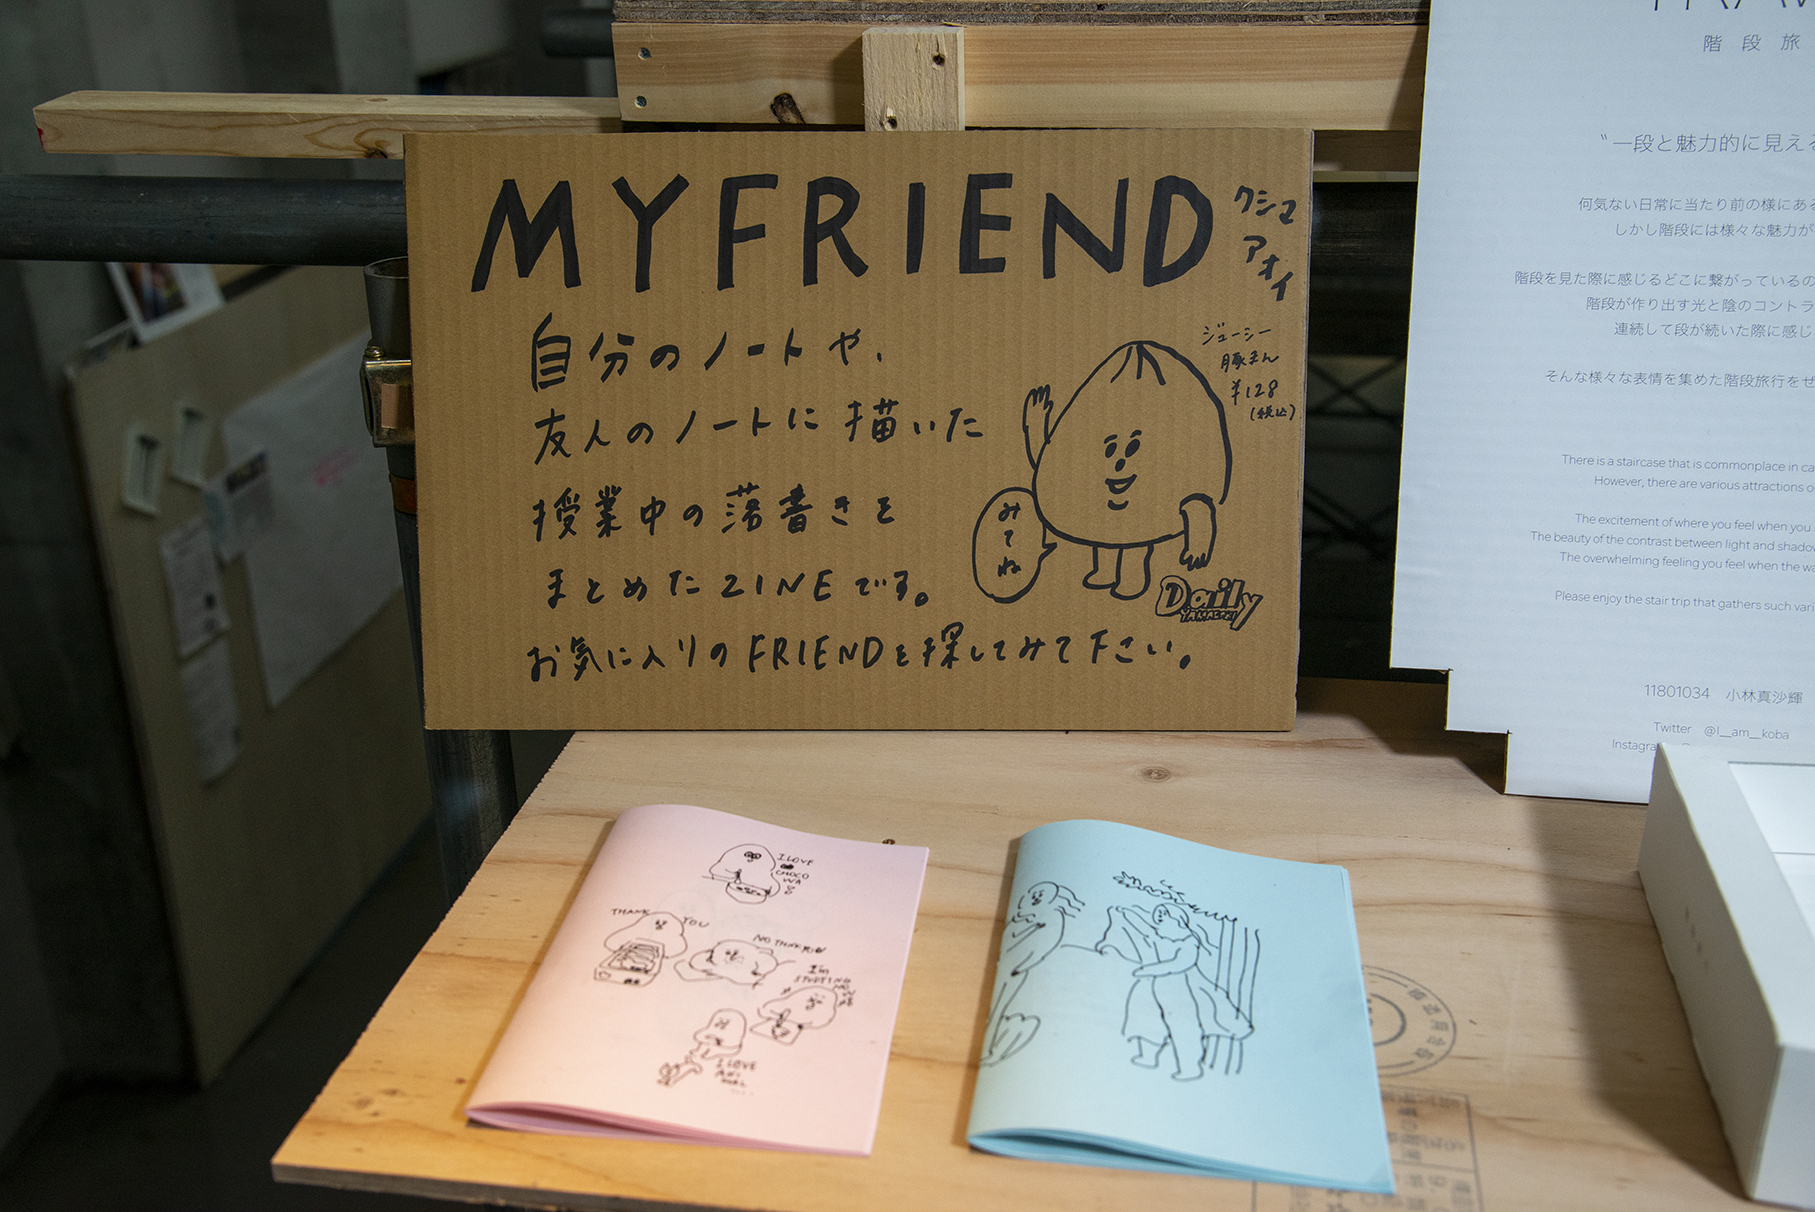 MYFRIEND
クシマ
アオイ
自分のノートや、
友人のノートに描いた
授業中の落書きを
まとめたZINEです。
お気に入りのFRIENDを探してみて下さい。
ジューシー
豚まん
¥128
(税込)
みてね
Daily
YAMAZAKI
I LOVE
CHOCO
WA
THANK YOU
I'm
STUDYING
I LOVE
ANI
MAL
階段旅
〝一段と魅力的に見える
何気ない日常に当たり前の様にある
しかし階段には様々な魅力が
階段を見た際に感じるどこに繋がっているの
階段が作り出す光と陰のコントラ
連続して段が続いた際に感じ
そんな様々な表情を集めた階段旅行をぜ
There is a staircase that is commonplace in ca
However, there are various attractions o
The excitement of where you feel when you
The beauty of the contrast between light and shadow
The overwhelming feeling you feel when the wa
Please enjoy the stair trip that gathers such vari
11801034 小林真沙輝
Twitter @I__am__koba
Instagra